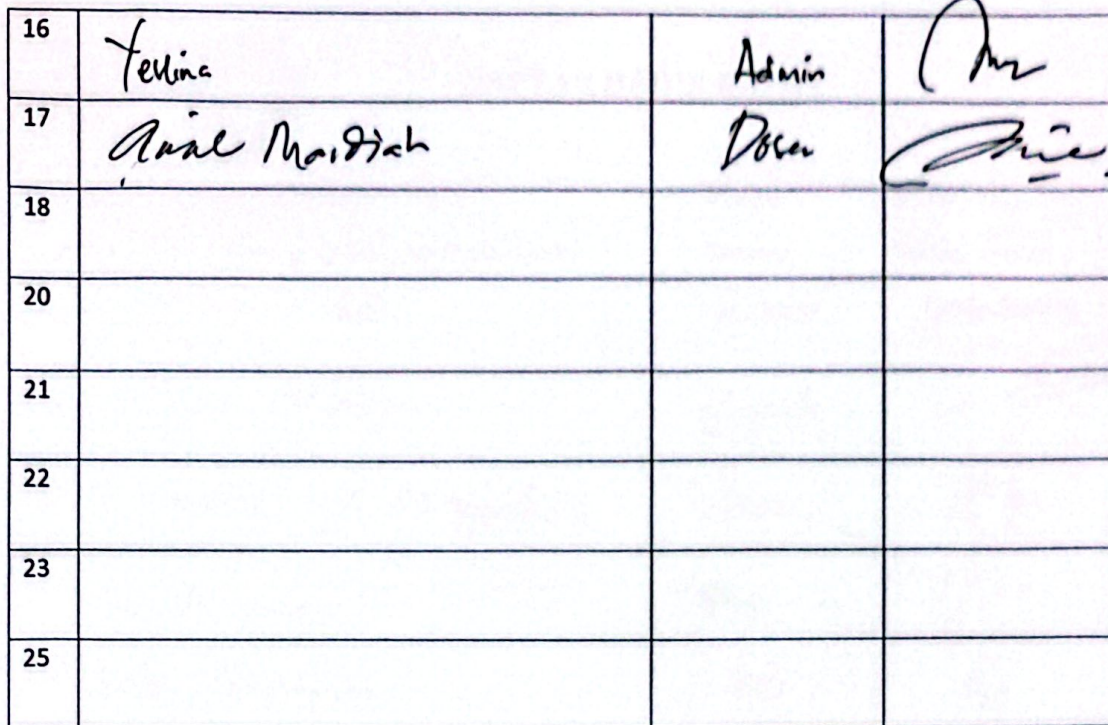 16 Yellina Admin
17 Ainal Mardiah Dosen
18
20
21
22
23
25